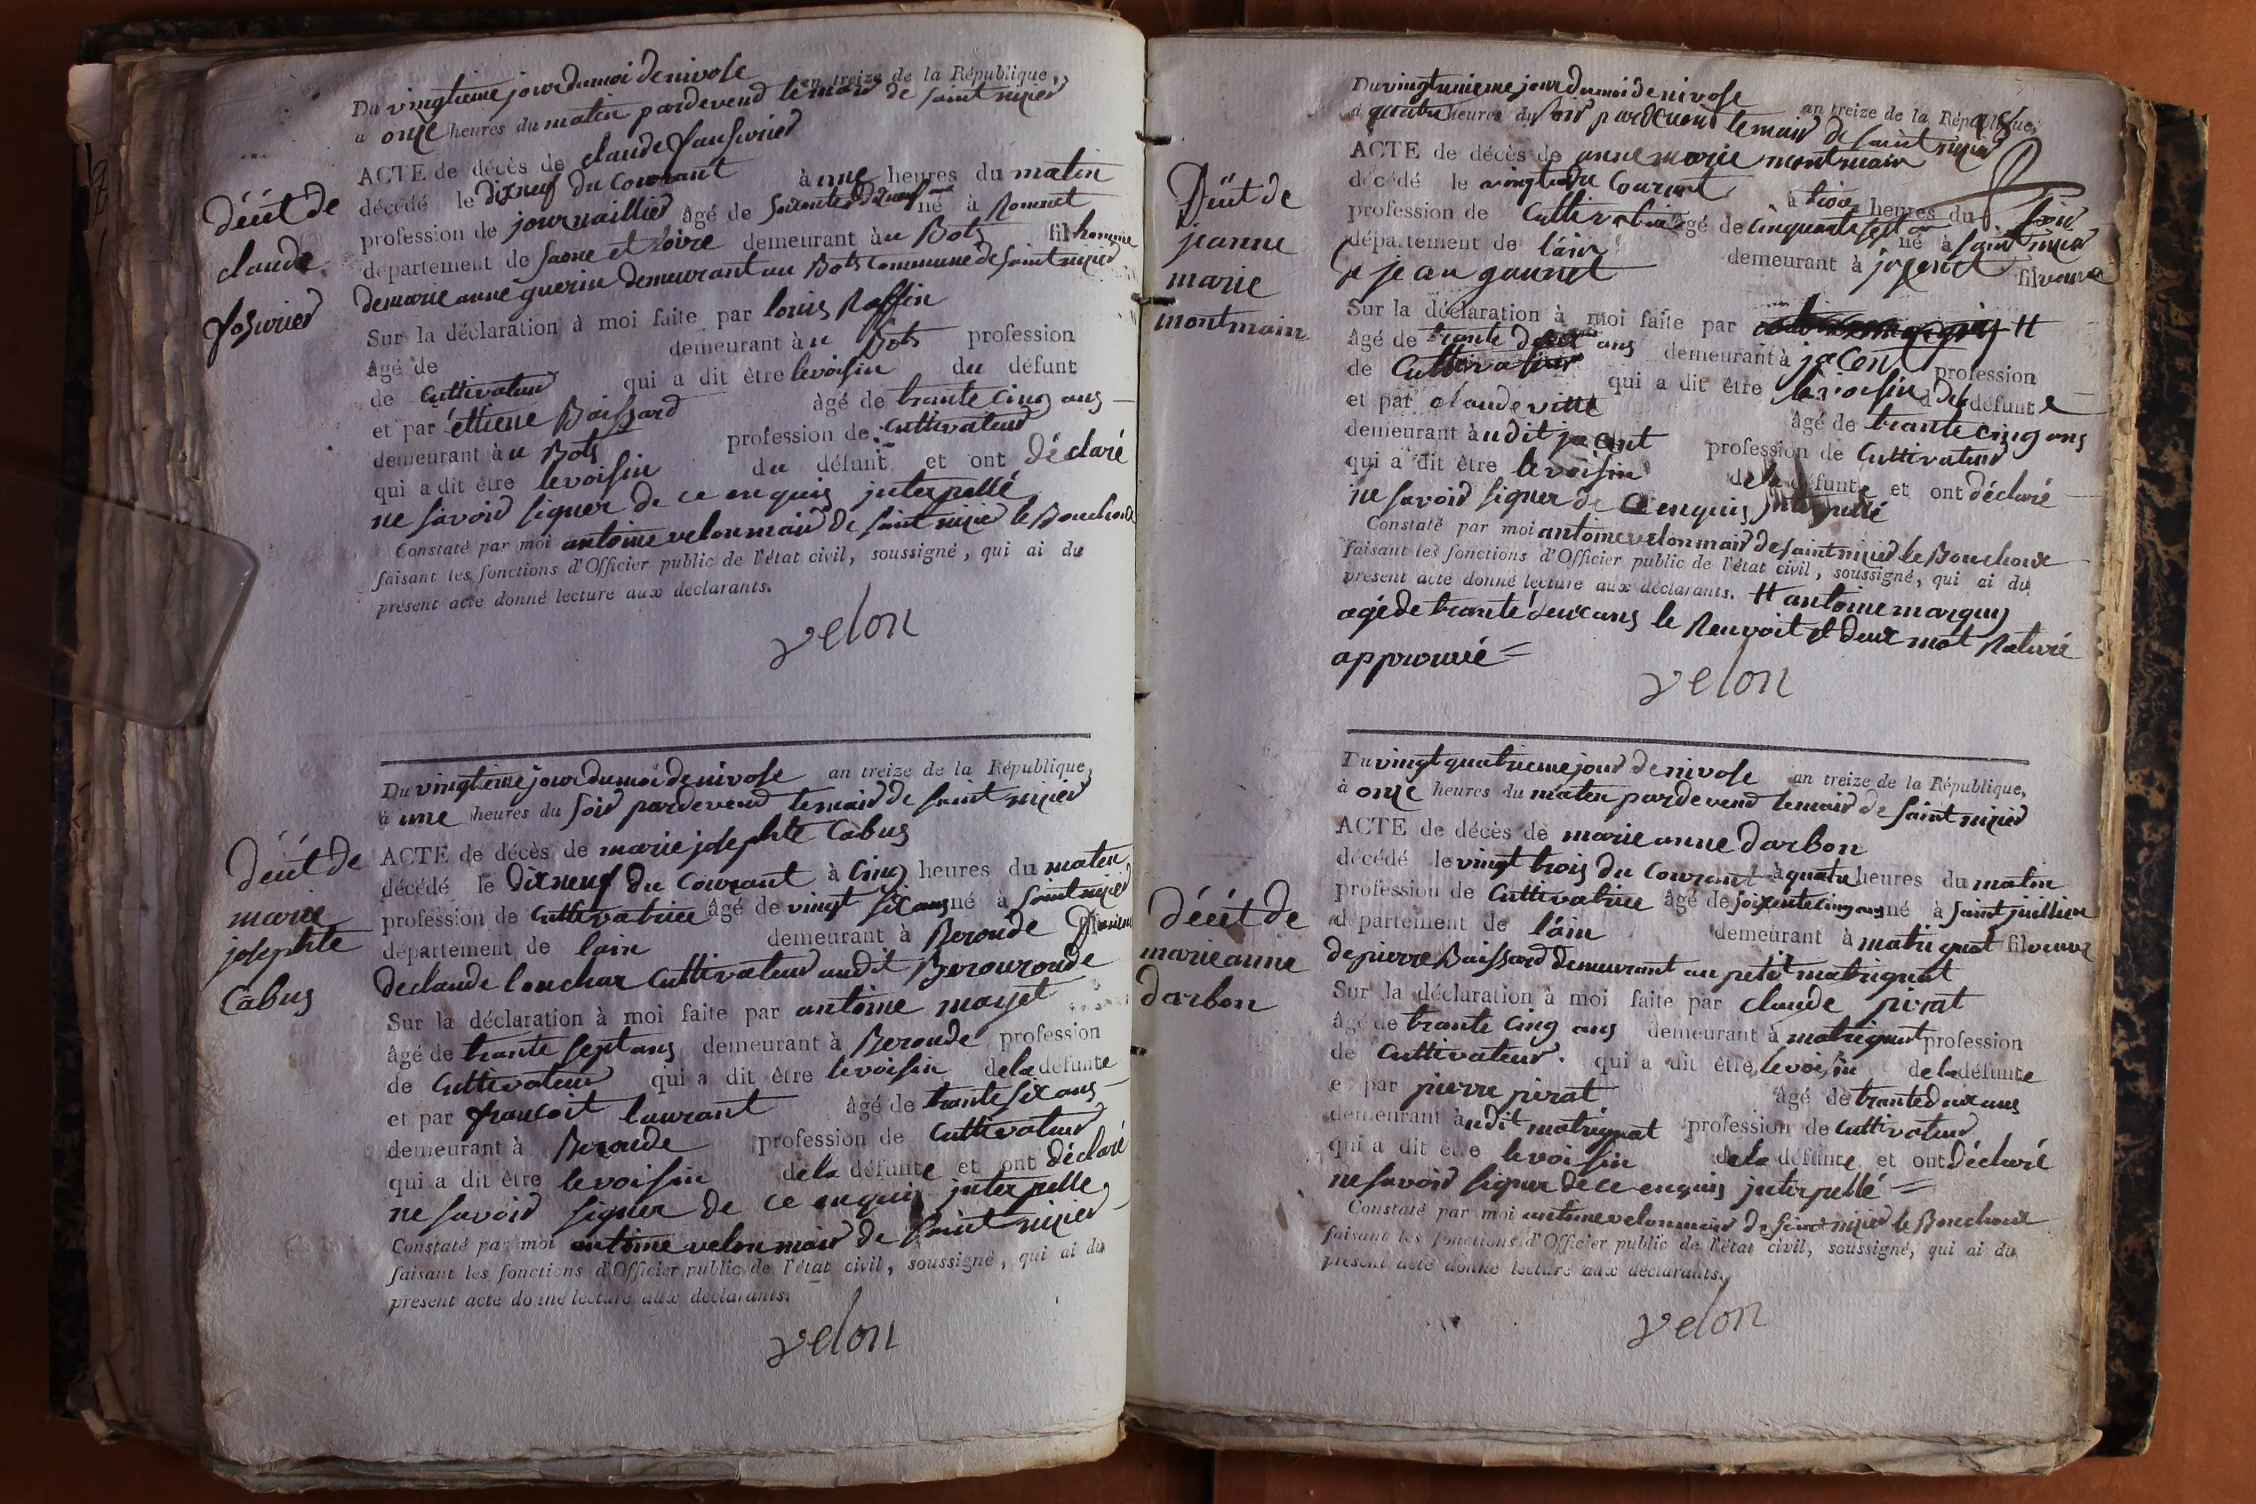 Du vingtieme jour du moi de nivose an treize de la République,
a onze heures du matin pardevend le maire de saint nizier
ACTE de décès de claude fausurier
décédé le dixneuf du Courant à une heures du matin
profession de journaillier âgé de soixante dixneuf an né à Romnet
département de saone et Loire demeurant àu Bots fil homme
de marie anne guerin demeurant au Bots Commune de saint nizier
Sur la déclaration à moi faite par louis Raffin
âgé de demeurant àu Bots profession
de Cultivateur qui a dit être le voisin du défunt
et par éttiene Boissard âgé de trante cinq ans
demeurant àu Bots profession de Cultivateur
qui a dit être le voisin du défunt et ont déclaré
ne savoir signer de ce enquis interpellé
Constaté par moi antoine velon maire de saint nizier le Bouchoux
faisant les fonctions d'Officier public de l'état civil, soussigné, qui ai du
présent acte donné lecture aux déclarants.
velon
décét de
claude
fosurier
Du vingtieme jour du moi de nivose an treize de la République,
à une heures du soir pardevend le maire de saint nizier
ACTE de décès de marie josephte Cabus
décédé le dixneuf du Courant à Cinq heures du maten
profession de Cultivatrice âgé de vingt six ans né à saint nizier
département de lain demeurant à Beroude
de claude louchar Cultivateur audit Berouroude
Sur la déclaration à moi faite par antoine mayet
âgé de trante sept ans demeurant à Beroude profession
de Cultivateur qui a dit être le voisin de la défunte
et par francoit laurant âgé de trante six ans
demeurant à Beroude profession de Cultivateur
qui a dit être le voisin de la défunte et ont déclaré
ne savoir signer de ce enquis interpelle
Constaté par moi antoine velon maire de saint nizier
faisant les fonctions d'Officier public de l'état civil, soussigné, qui ai du
présent acte donné lecture aux déclarants.
velon
décét de
marie
josephte
Cabus
Du vingtunieme jour du moi de nivose an treize de la République,
à quatre heures du soir pardevend le maire de saint nizier
ACTE de décès de anne marie montmain
décédé le vingt du Courant à trois heures du soir
profession de Cultivatrice âgé de cinquante sept an né à saint nizier
département de láin demeurant à jazent fil veuve
de jean gounet
Sur la déclaration à moi faite par H
âgé de trante deux ans demeurant à jacen profession
de Cultivateur qui a dit être le voisin de la défunte
et par claude vitte âgé de trante cinq ans
demeurant àudit jacent profession de Cultivateur
qui a dit être le voisin de la défunte et ont déclaré
ne savoir signer de Ce enquis interpellé
Constaté par moi antoine velon maire de saint nizier le Bouchoux
faisant les fonctions d'Officier public de l'état civil, soussigné, qui ai du
présent acte donné lecture aux déclarants. H antoine marguy
agé de trante deux ans le Renvoit et deux mot Raturé
approuvé =
velon
Décét de
jeanne
marie
montmain
Du vingt quatrieme jour de nivose an treize de la République,
à onze heures du maten pardevend le maire de saint nizier
ACTE de décès de marie anne darbon
décédé le vingt trois du Courant à quatre heures du matin
profession de Cultivatrice âgé de soixente cinq ans né à saint jullien
département de láin demeurant à matrignat fil veuve
de pierre Boissard demeurant au petit matrignat
Sur la déclaration à moi faite par claude pirat
âgé de trante Cinq ans demeurant à matrignat profession
de Cultivateur qui a dit être le voisin de la défunte
e par pierre pirat âgé de trante deux ans
demeurant àudit matrignat profession de Cultivateur
qui a dit être le voisin de la défunte et ont déclaré
ne savoir signer de ce enquis interpellé =
Constaté par moi antoine velon maire de saint nizier le Bouchoux
faisant les fonctions d'Officier public de l'état civil, soussigné, qui ai du
présent acte donné lecture aux déclarants.
velon
décét de
marie anne
darbon